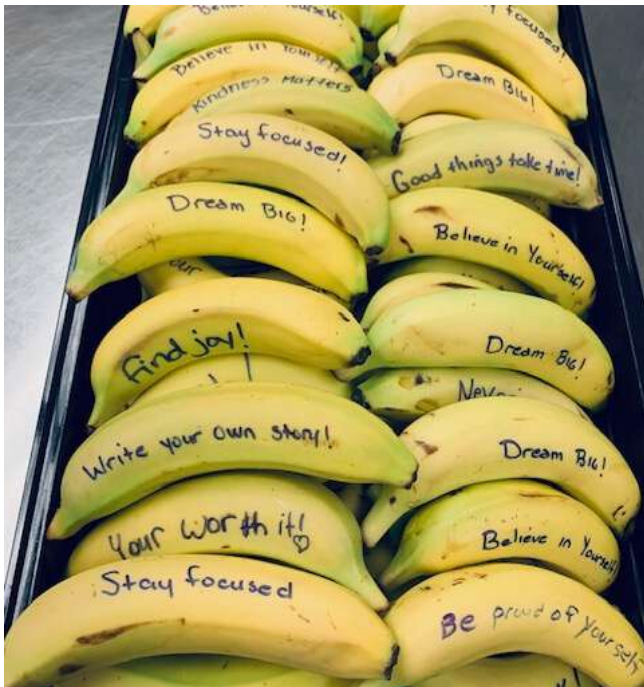 Believe in Yourself!
Believe in Yourself
Kindness Matters
Stay focused!
Dream BIG!
our
find joy!
Write your own story!
Your worth it!
Stay focused
focused!
Dream BIG!
Good things take time!
Believe in Yourself!
Dream BIG!
Never
Dream BIG!
Believe in Yourself!
Be proud of yourself